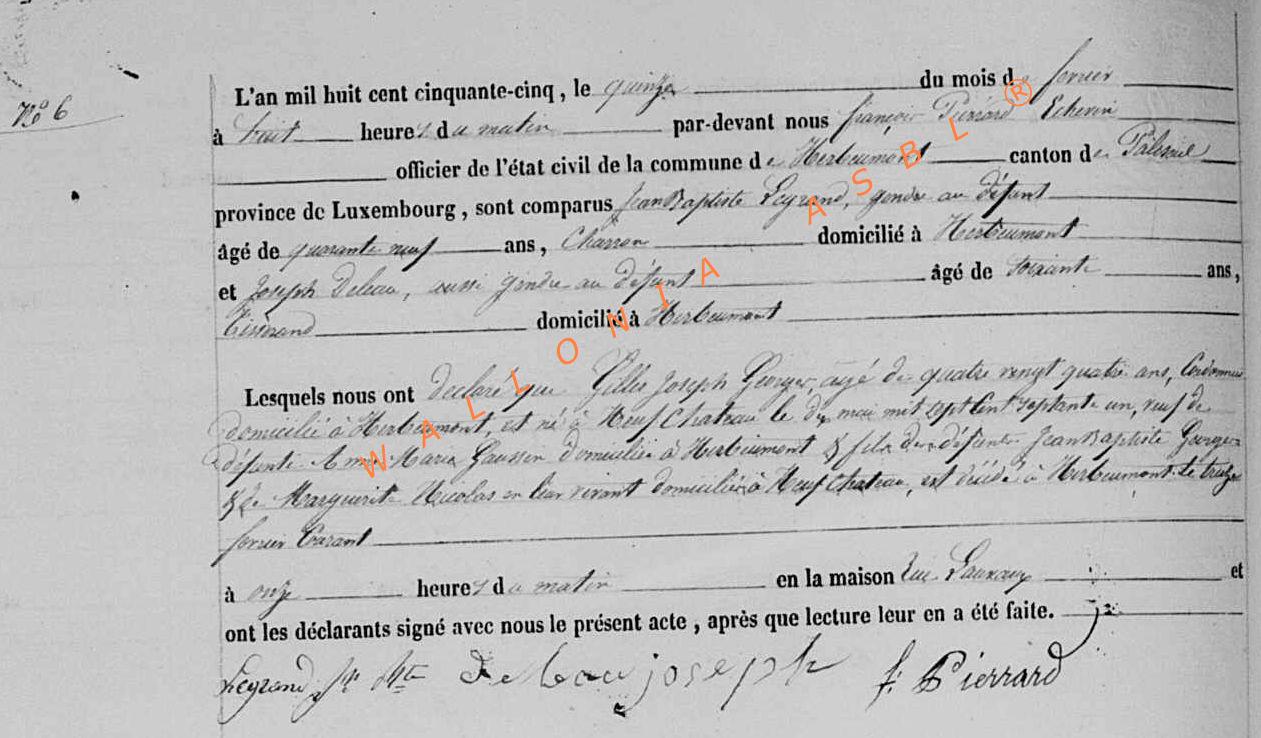 N° 6
L'an mil huit cent cinquante-cinq, le quinze du mois de fevrier
à huit heures du matin par-devant nous françois Pierrard Echevin
officier de l'état civil de la commune de Herbeumont canton de Paliseul
province de Luxembourg, sont comparus Jean Baptiste Legrand, gendre au défunt
âgé de quarante neuf ans, Charron domicilié à Herbeumont
et Joseph Deleau, aussi gendre au défunt âgé de soixante ans,
tisserand domicilié à Herbeumont
Lesquels nous ont declaré que Gilles Joseph Georges, agé de quatre vingt quatre ans, Cordonnier
domicilié à Herbeumont, et né à Neufchateau le dix mai mil sept cent septante un, veuf de
défunte Anne Marie Gaussin domiciliée à Herbeumont & fils des défunts Jean Baptiste Georges
& de Marguerite Nicolas en leur vivant domiciliés à Neufchateau, est décédé à Herbeumont le treize
fevrier Courant
à onze heures du matin en la maison et
ont les déclarants signé avec nous le présent acte, après que lecture leur en a été faite.
Legrand Jn Bte Deleau joseph f. Pierrard
WALLONIA ASBL ®